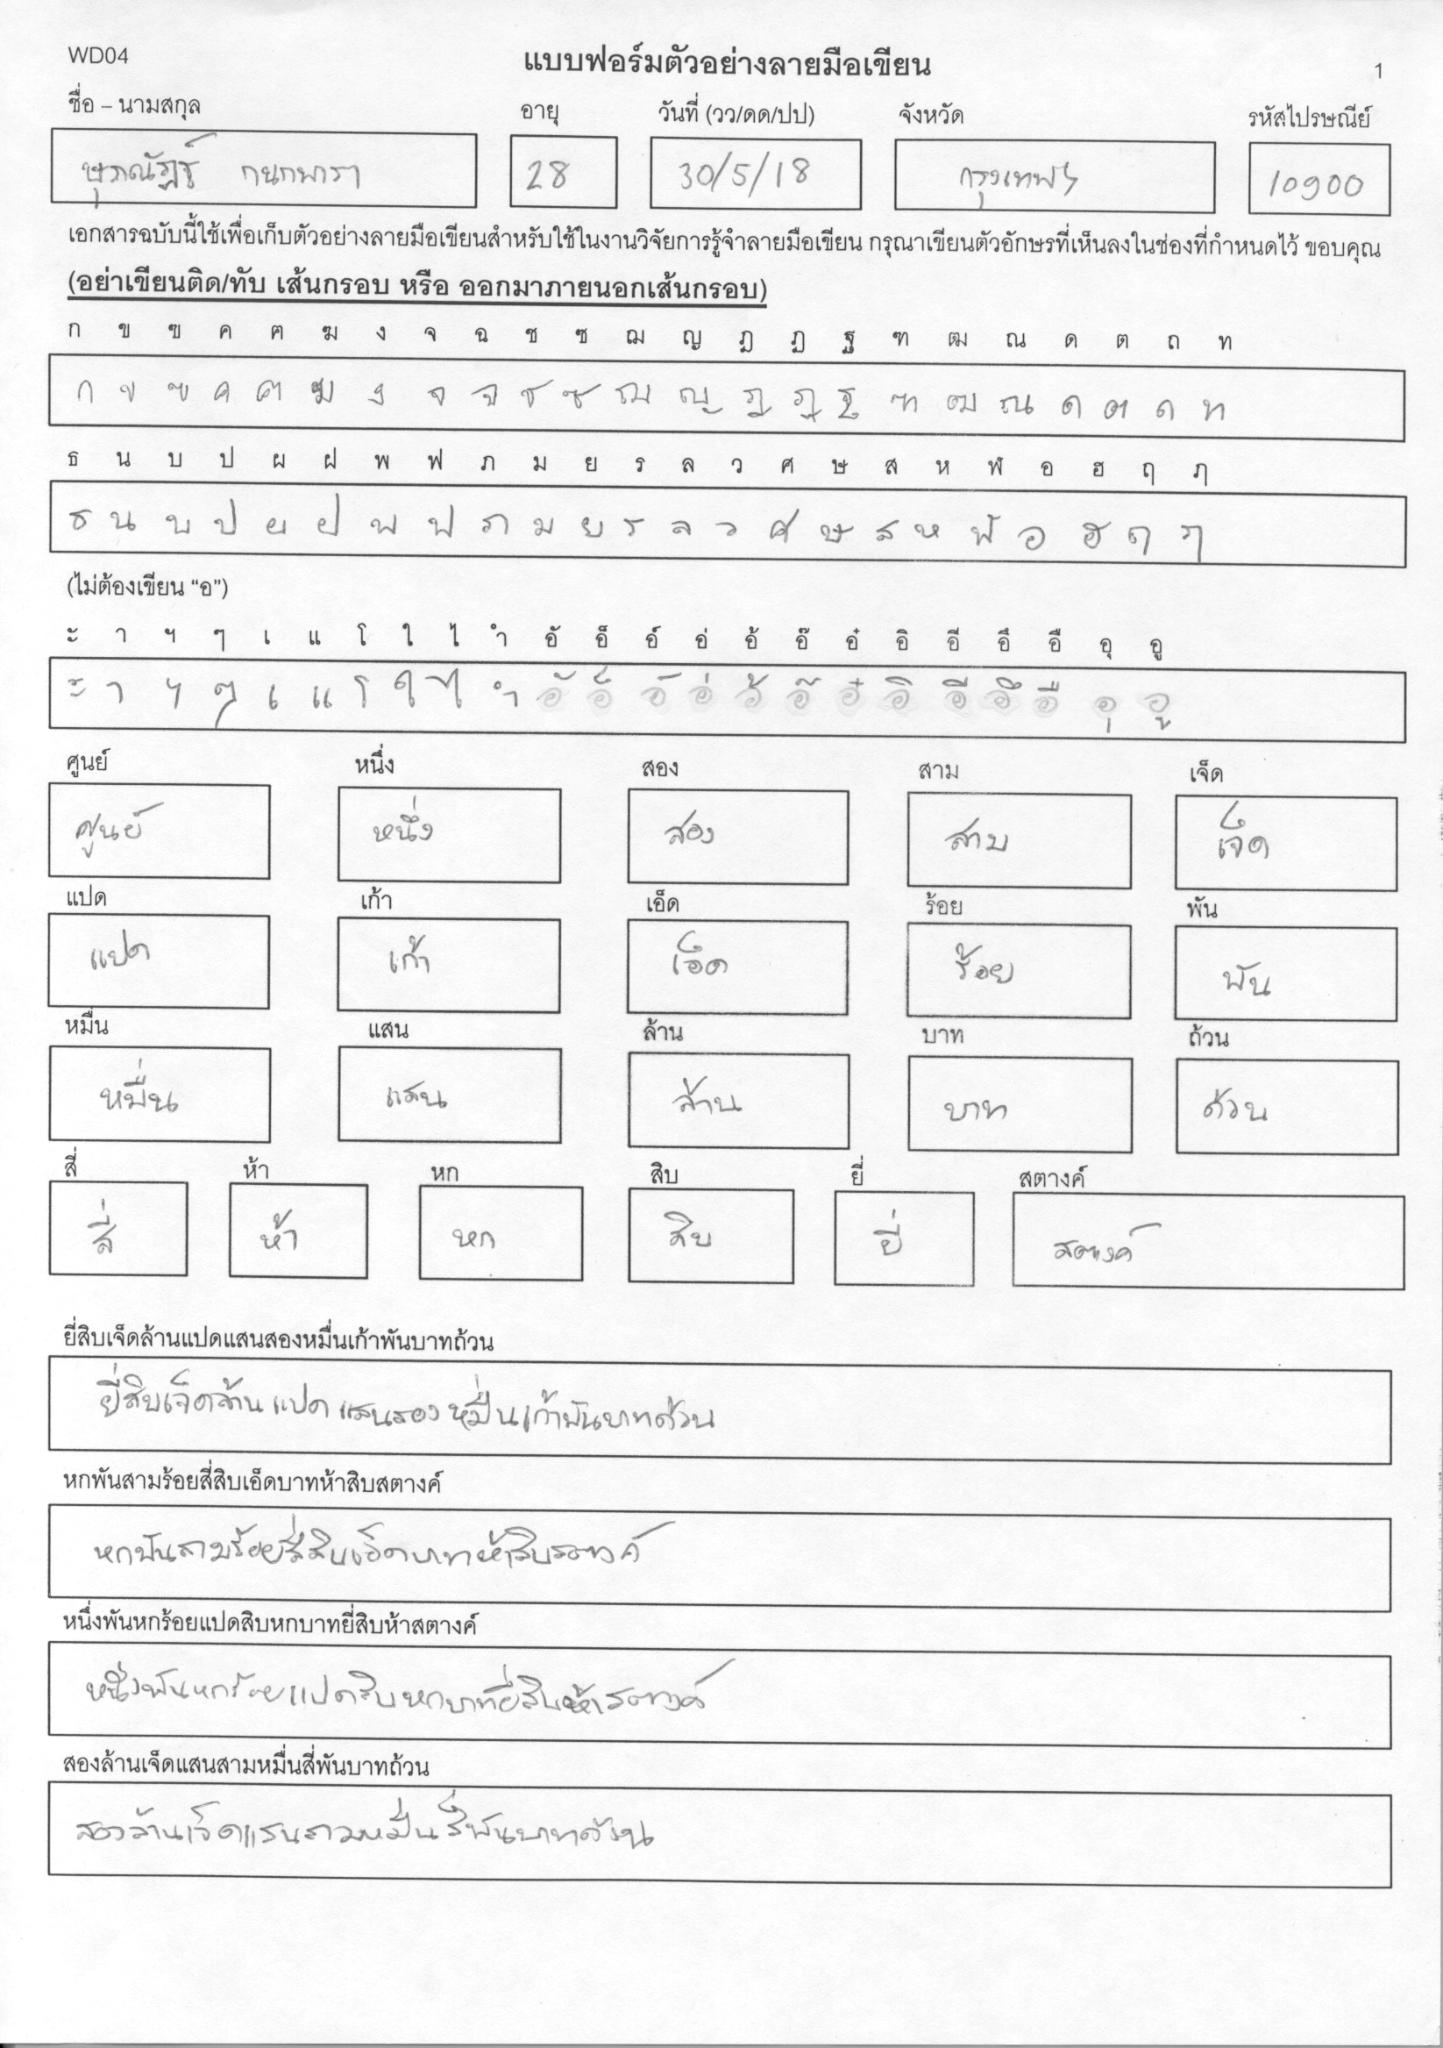 WD04
แบบฟอร์มตัวอย่างลายมือเขียน
1
ชื่อ – นามสกุล อายุ วันที่ (วว/ดด/ปป) จังหวัด รหัสไปรษณีย์
28 30/5/18 กรุงเทพฯ 10900
เอกสารฉบับนี้ใช้เพื่อเก็บตัวอย่างลายมือเขียนสำหรับใช้ในงานวิจัยการรู้จำลายมือเขียน กรุณาเขียนตัวอักษรที่เห็นลงในช่องที่กำหนดไว้ ขอบคุณ
(อย่าเขียนติด/ทับ เส้นกรอบ หรือ ออกมาภายนอกเส้นกรอบ)
ก ข ฃ ค ฅ ฆ ง จ ฉ ช ซ ฌ ญ ฎ ฏ ฐ ฑ ฒ ณ ด ต ถ ท
ก ข ฃ ค ฅ ฆ ง จ ฉ ช ซ ฌ ญ ฎ ฏ ฐ ฑ ฒ ณ ด ต ถ ท
ธ น บ ป ผ ฝ พ ฟ ภ ม ย ร ล ว ศ ษ ส ห ฬ อ ฮ ฤ ฦ
ธ น บ ป ผ ฝ พ ฟ ภ ม ย ร ล ว ศ ษ ส ห ฬ อ ฮ ฤ ฦ
(ไม่ต้องเขียน “อ”)
ะ า ฯ ๆ เ แ โ ใ ไ ำ อั อ็ อ์ อ่ อ้ อ๊ อ๋ อิ อี อึ อื อุ อู
ะ า ฯ ๆ เ แ โ ใ ไ ำ อั อ็ อ์ อ่ อ้ อ๊ อ๋ อิ อี อึ อื อุ อู
ศูนย์ หนึ่ง สอง สาม เจ็ด
ศูนย์ หนึ่ง สอง สาม เจ็ด
แปด เก้า เอ็ด ร้อย พัน
แปด เก้า เอ็ด ร้อย พัน
หมื่น แสน ล้าน บาท ถ้วน
หมื่น แสน ล้าน บาท ถ้วน
สี่ ห้า หก สิบ ยี่ สตางค์
สี่ ห้า หก สิบ ยี่ สตางค์
ยี่สิบเจ็ดล้านแปดแสนสองหมื่นเก้าพันบาทถ้วน
ยี่สิบเจ็ดล้านแปดแสนสองหมื่นเก้าพันบาทถ้วน
หกพันสามร้อยสี่สิบเอ็ดบาทห้าสิบสตางค์
หกพันสามร้อยสี่สิบเอ็ดบาทห้าสิบสตางค์
หนึ่งพันหกร้อยแปดสิบหกบาทยี่สิบห้าสตางค์
หนึ่งพันหกร้อยแปดสิบหกบาทยี่สิบห้าสตางค์
สองล้านเจ็ดแสนสามหมื่นสี่พันบาทถ้วน
สองล้านเจ็ดแสนสามหมื่นสี่พันบาทถ้วน